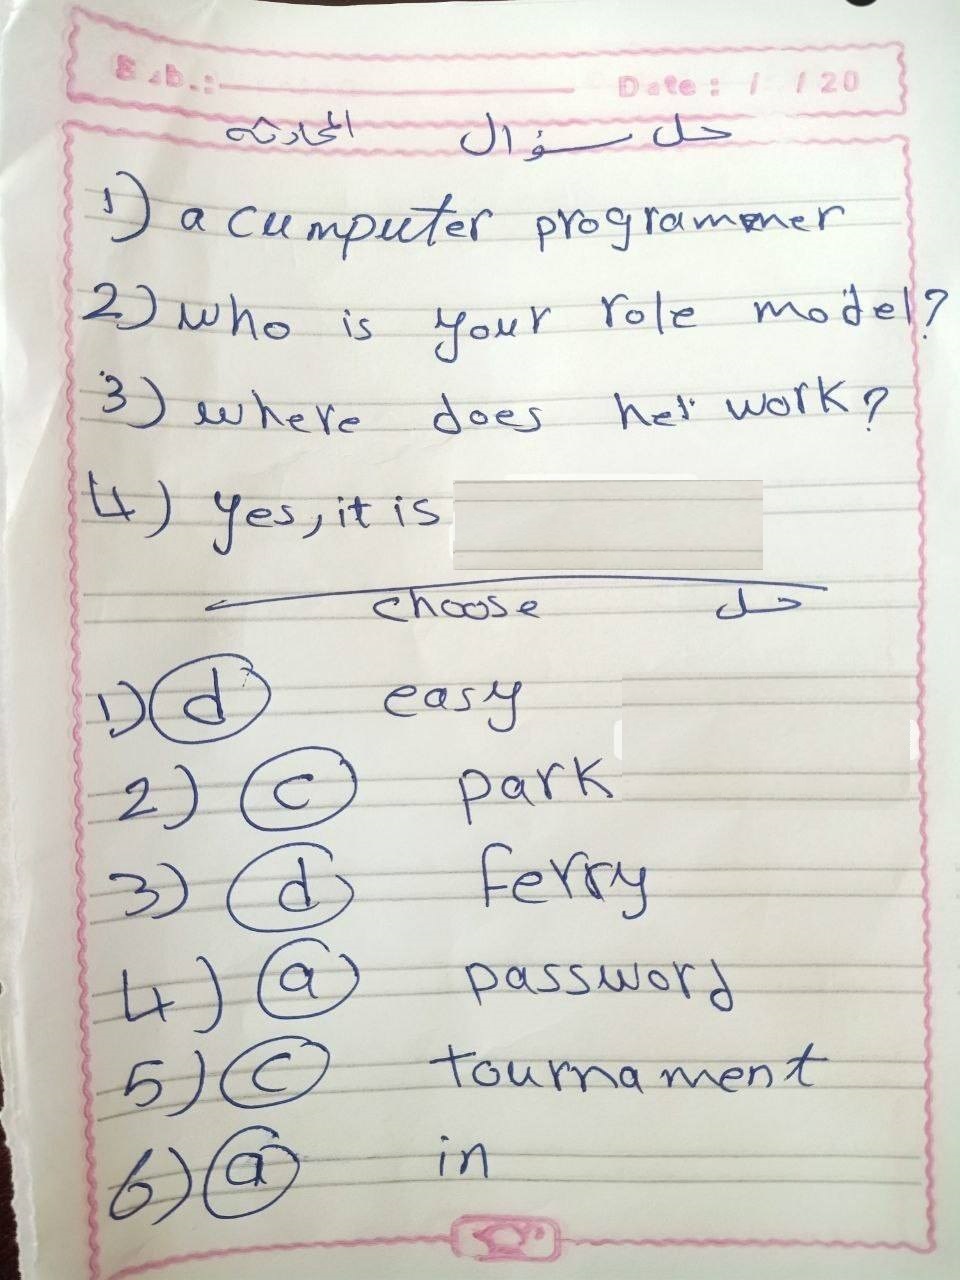 S.b.: Date: / / 20
حل سؤال المحادثه
1) a cumputer programmer
2) who is your role model?
3) where does her work?
4) yes, it is
choose حل
1) d easy
2) c park
3) d ferry
4) a password
5) c tournament
6) a in